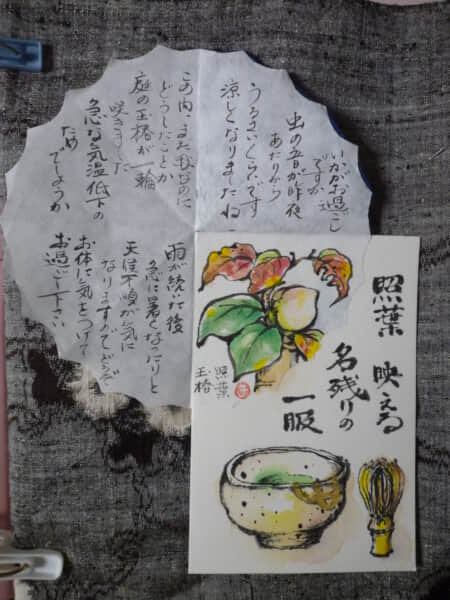 いかがお過ごし
ですか
虫の音が昨夜
あたりから
うるさいくらいです
涼しくなりましたね
この内、まだむしむしのに
どうしたことか
庭の玉椿が一輪
咲きました
急な気温低下の
ため
でしょうか
雨が続いた後
急に暑くなったりと
天候不順が気に
なりますのでどうぞ
お体に気をつけて
お過ごし下さい
照葉 映える
名残りの
一服
照葉
玉椿